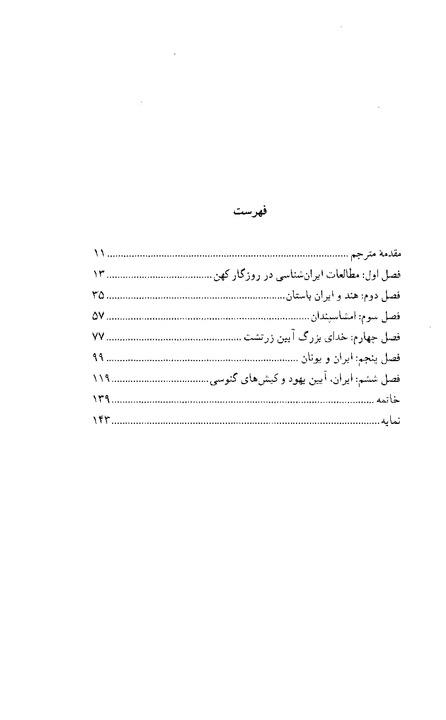 فهرست
مقدمهٔ مترجم ........ ۱۱
فصل اول: مطالعات ایران‌شناسی در روزگار کهن ........ ۱۳
فصل دوم: هند و ایران باستان ........ ۳۵
فصل سوم: امشاسپندان ........ ۵۷
فصل چهارم: خدای بزرگ آیین زرتشت ........ ۷۷
فصل پنجم: ایران و یونان ........ ۹۹
فصل ششم: ایران، آیین یهود و کیش‌های گنوسی ........ ۱۱۹
خاتمه ........ ۱۳۹
نمایه ........ ۱۴۳